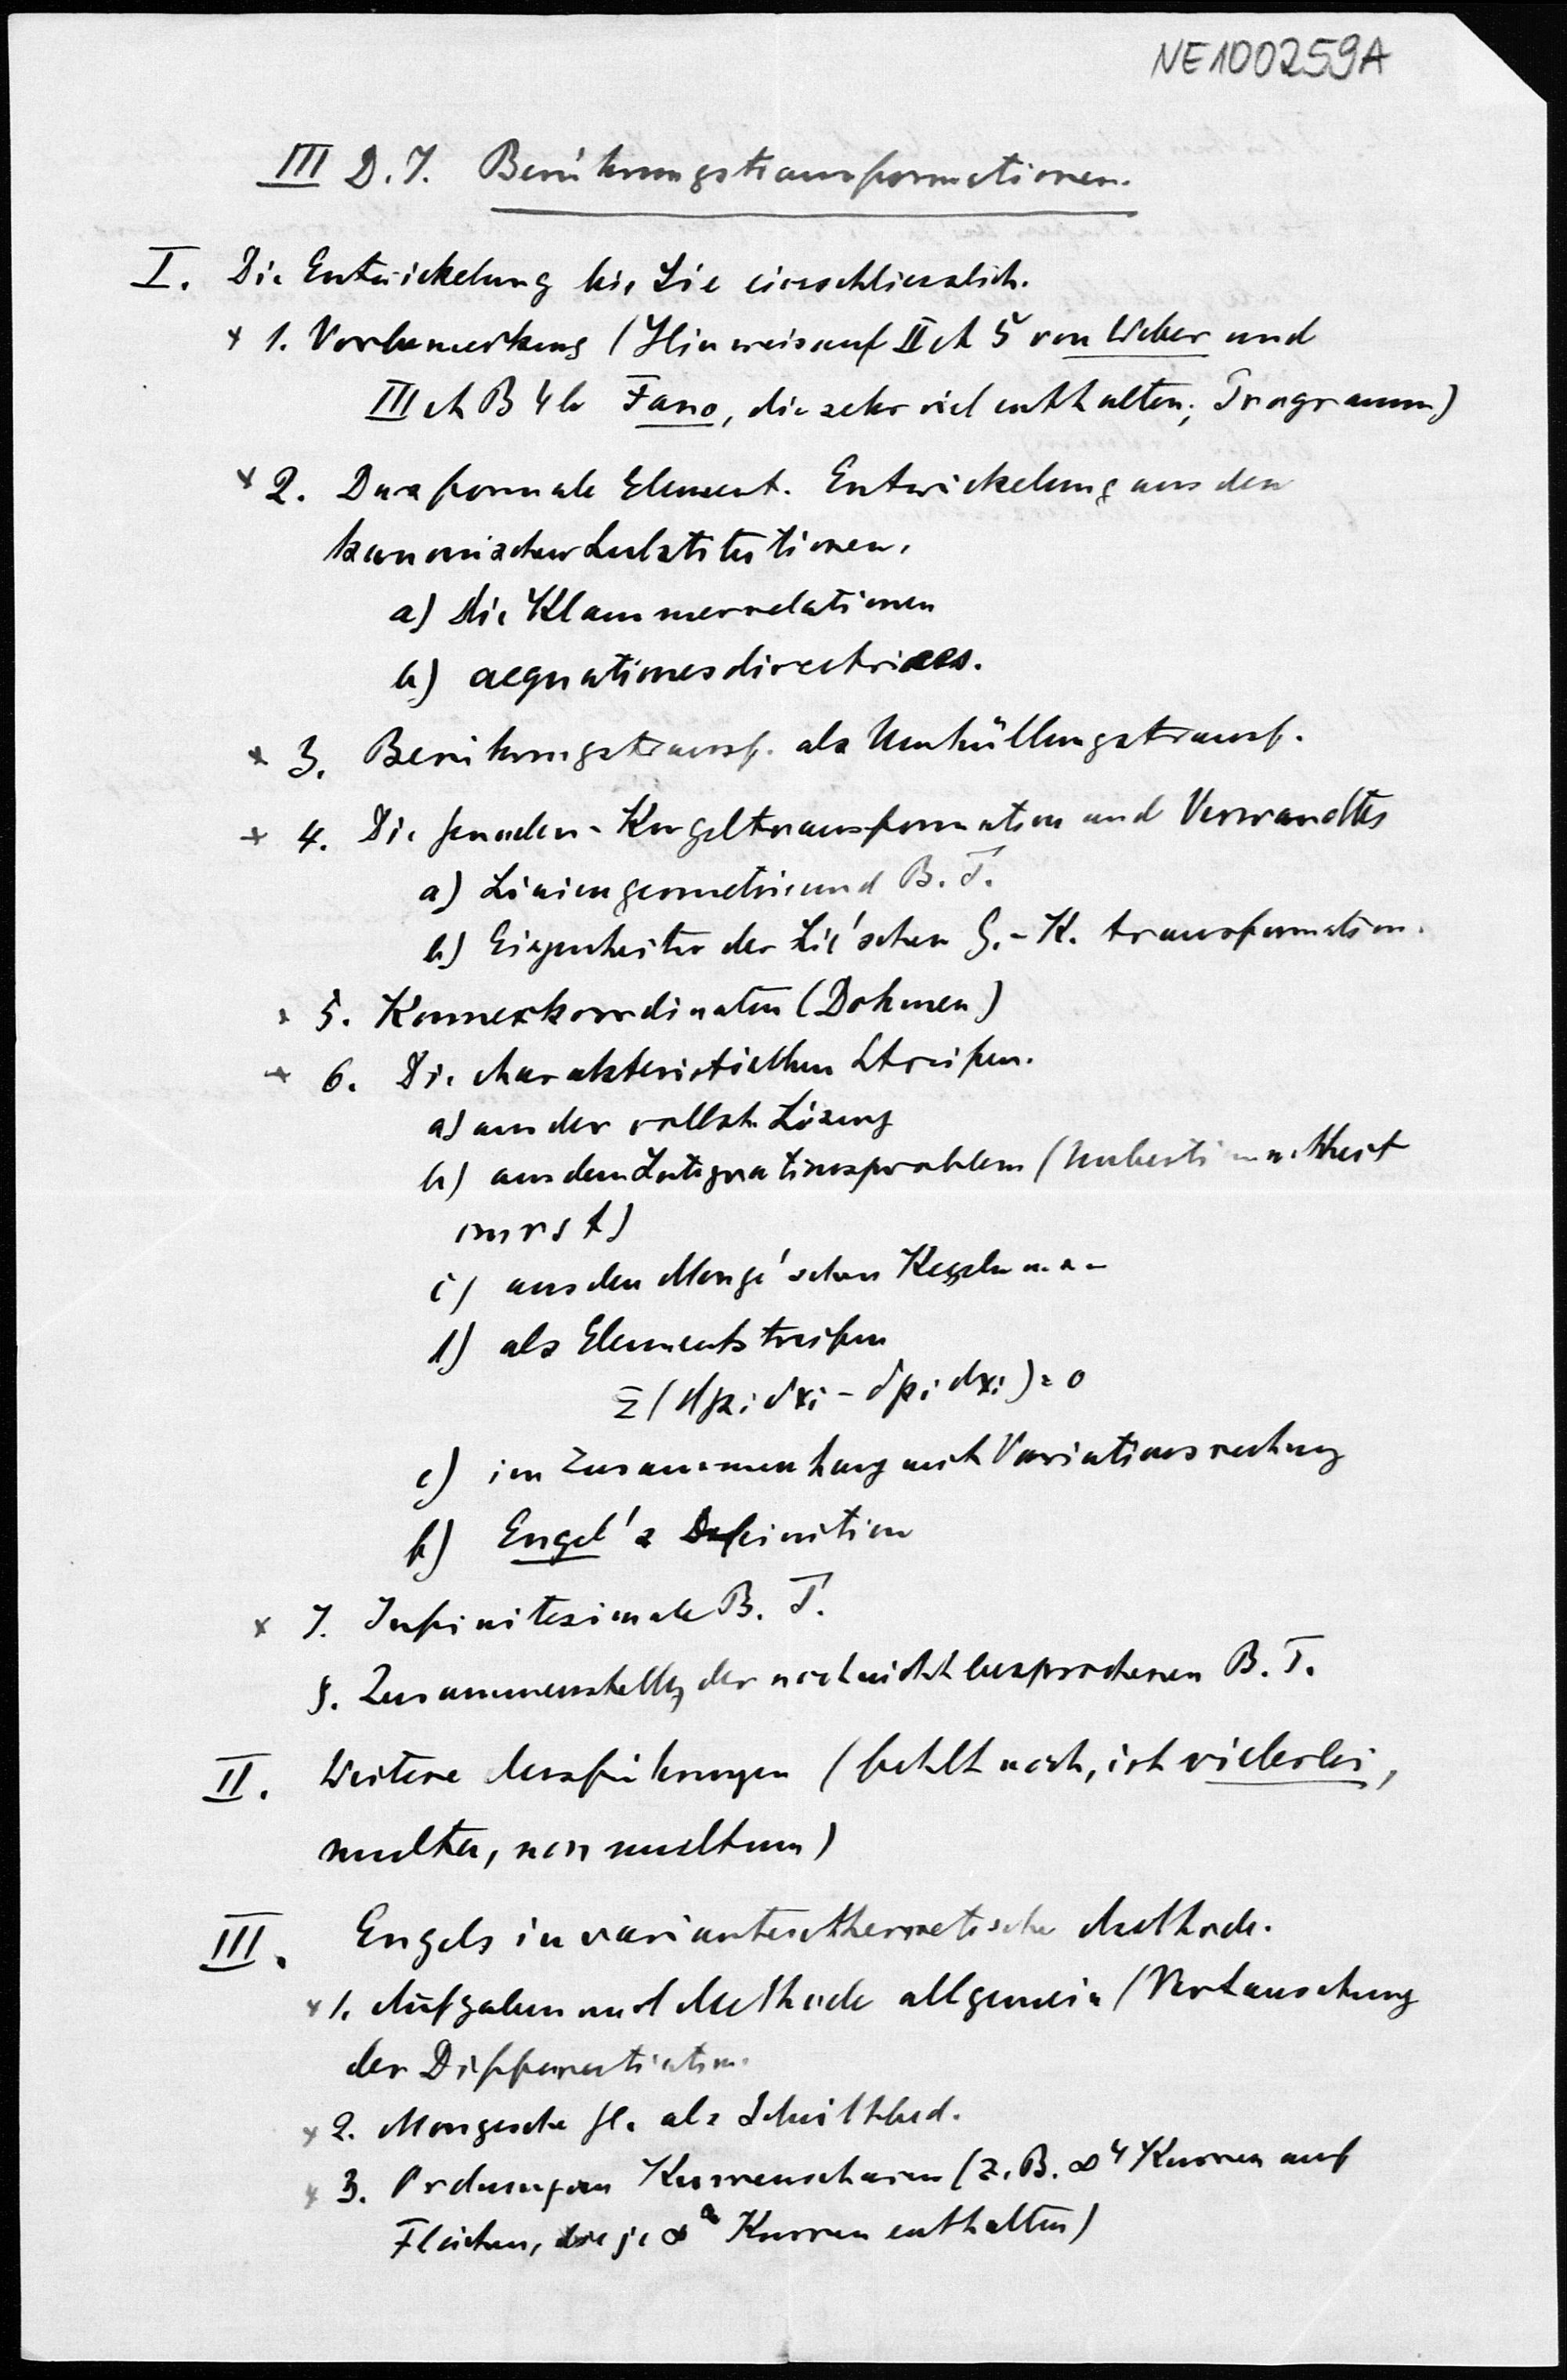 NE100259A
III D. 7. Berührungstransformationen.
I. Die Entwickelung bis Lie einschliesslich.
x 1. Vorbemerkung (Hinweis auf II A 5 von Weber und
III A B 4b Fano, die sehr viel enthalten; Programm)
x 2. Das formale Element. Entwickelung aus den
kanonischen Substitutionen.
a) Die Klammerrelationen
b) aequationes directrices.
x 3. Berührungstransf. als Umhüllungstransf.
x 4. Die Geraden-Kugeltransformation und Verwandtes
a) Liniengeometrie und B. T.
b) Eigenheiten der Lie'schen G.-K. transformation.
x 5. Konnexkoordinaten (Dohmen)
x 6. Die charakteristischen Streifen.
a) aus der vollst. Lösung
b) aus dem Integrationsproblem (Unbestimmtheit
von r s t)
c) aus den Monge'schen Kegeln u. s. w.
d) als Elementstreifen
Σ(dpi δxi - δpi dxi) = 0
e) im Zusammenhang mit Variationsrechnung
f) Engel's Definition
x 7. Infinitesimale B. T.
8. Zusammenstellg der noch nicht besprochenen B. T.
II. Weitere Ausführungen (fehlt noch, ist vielerlei,
multa, non multum)
III. Engels invariantentheoretische Methode.
x 1. Aufgaben und Methode allgemein (Vertauschung
der Differentiation.
x 2. Mongesche Gl. als Schnittbed.
x 3. Ordnung von Kurvenscharen (z. B. ∞4 Kurven auf
Flächen, die je ∞ Kurven enthalten)